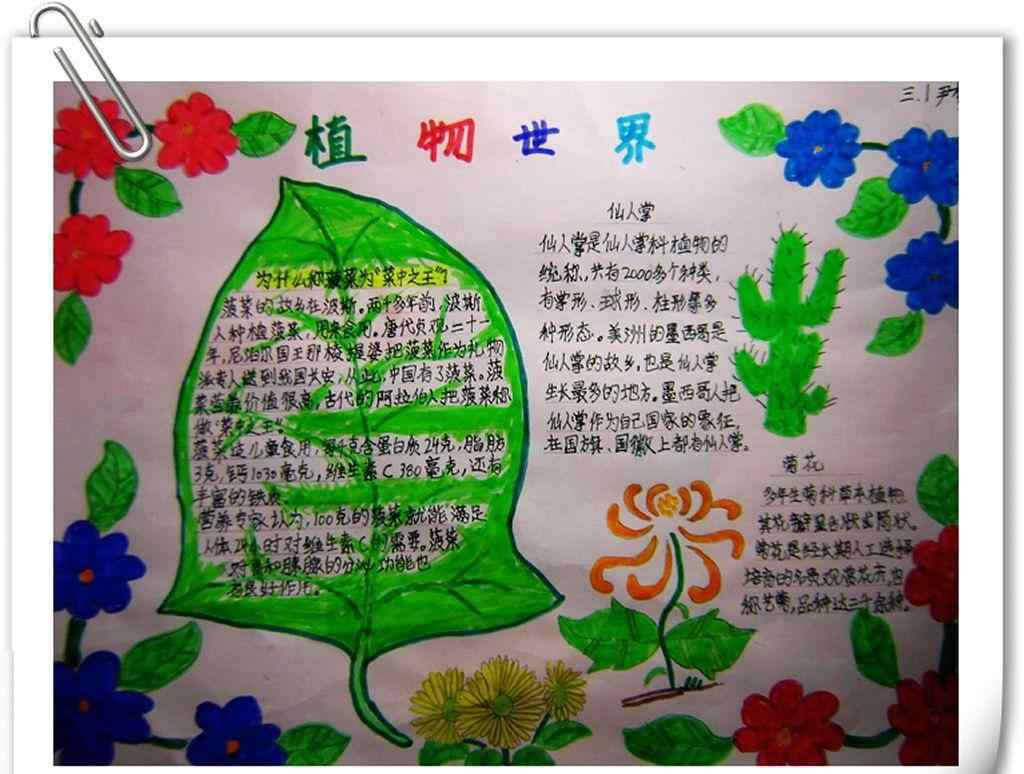 三.1 尹
植物世界
为什么称菠菜为"菜中之王"?
菠菜的故乡在波斯。两千多年前,波斯
人种植菠菜,用来食用。唐代贞观二十一
年,尼泊尔国王那棱提婆把菠菜作为礼物
派专人送到我国长安,从此,中国有了菠菜。菠
菜营养价值很高,古代的阿拉伯人把菠菜称
做"菜中之王"。
菠菜适儿童食用,每千克含蛋白质24克,脂肪
3克,钙1030毫克,维生素C 380毫克,还有
丰富的铁质
营养专家认为,100克的菠菜就能满足
人体24小时对维生素C的需要。菠菜
对胃和胰腺的分泌功能也
有良好作用。
仙人掌
仙人掌是仙人掌科植物的
统称,共有2000多个种类,
有掌形、球形、柱形等多
种形态。美洲的墨西哥是
仙人掌的故乡,也是仙人掌
生长最多的地方。墨西哥人把
仙人掌作为自己国家的象征,
在国旗、国徽上都有仙人掌。
菊花
多年生菊科草本植物
其花瓣呈舌状或筒状。
菊花是经长期人工选择
培育的名贵观赏花卉,也
称艺菊,品种达三千余种。